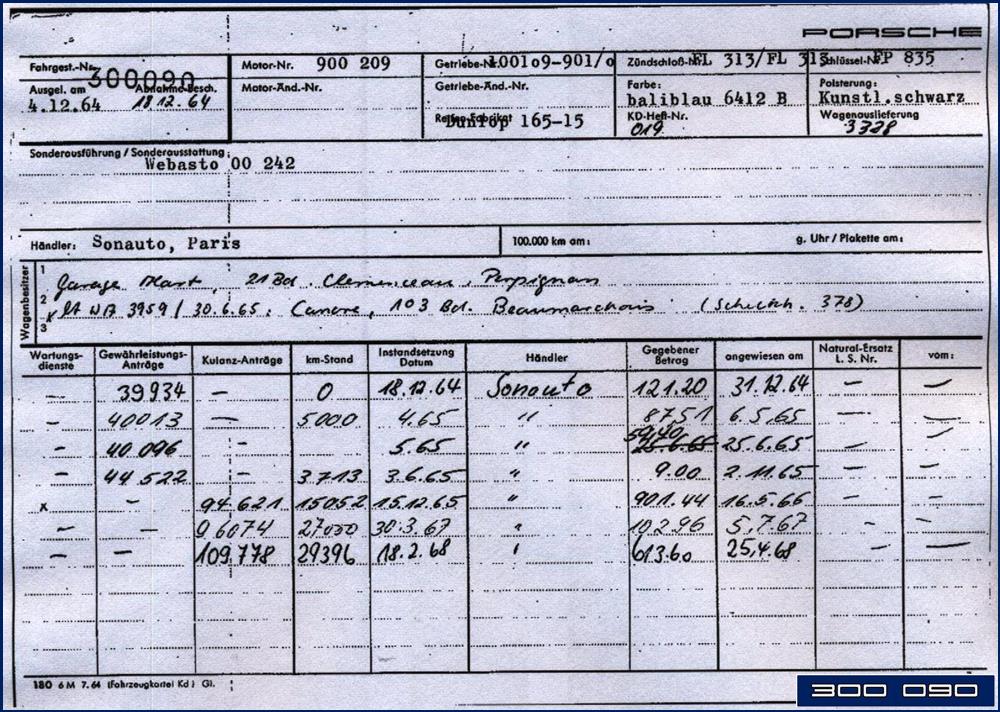 PORSCHE
Fahrgest.-Nr. 300090 Motor-Nr. 900 209 Getriebe-Nr. 100109-901/0 Zündschloß-Nr. FL 313/FL 313 Schlüssel-Nr. FP 835
Ausgel. am 4.12.64 Abnahme-Besch. 18 12. 64 Motor-Änd.-Nr. Getriebe-Änd.-Nr. Farbe: baliblau 6412 B Polsterung: Kunstl.schwarz
Reifen-Fabrikat Dunlop 165-15 KD-Heft-Nr. 019 Wagenauslieferung 3328
Sonderausführung / Sonderausstattung: Webasto 00 242
Händler: Sonauto, Paris 100.000 km am: g. Uhr / Plakette am:
Wagenbesitzer
1 Garage Mart, 21 Bd. Clemenceau, Perpignan
2 x lt WA 3959 / 30.6.65: Canore, 103 Bd. Beaumarchais (Scheckh. 378)
3
Wartungsdienste Gewährleistungs-Anträge Kulanz-Anträge km-Stand Instandsetzung Datum Händler Gegebener Betrag angewiesen am Natural-Ersatz L. S. Nr. vom:
— 39934 — 0 18.12.64 Sonauto 121.20 31.12.64 — —
— 40013 — 5000 4.65 " 87.51 6.5.65 — —
— 40 096 - 5.65 " 59,40 25.6.65 25.6.65 — —
— 44 522 - 3713 3.6.65 " 9.00 2.11.65 — —
x - 94 621 15052 15.12.65 " 901.44 16.5.66 — —
— — 96074 27000 30.3.67 " 102.96 5.7.67 - —
— — 109.778 29396 18.2.68 " 613.60 25.4.68 — —
180 6 M 7. 64 (Fahrzeugkartei Kd) Gl.
300 090